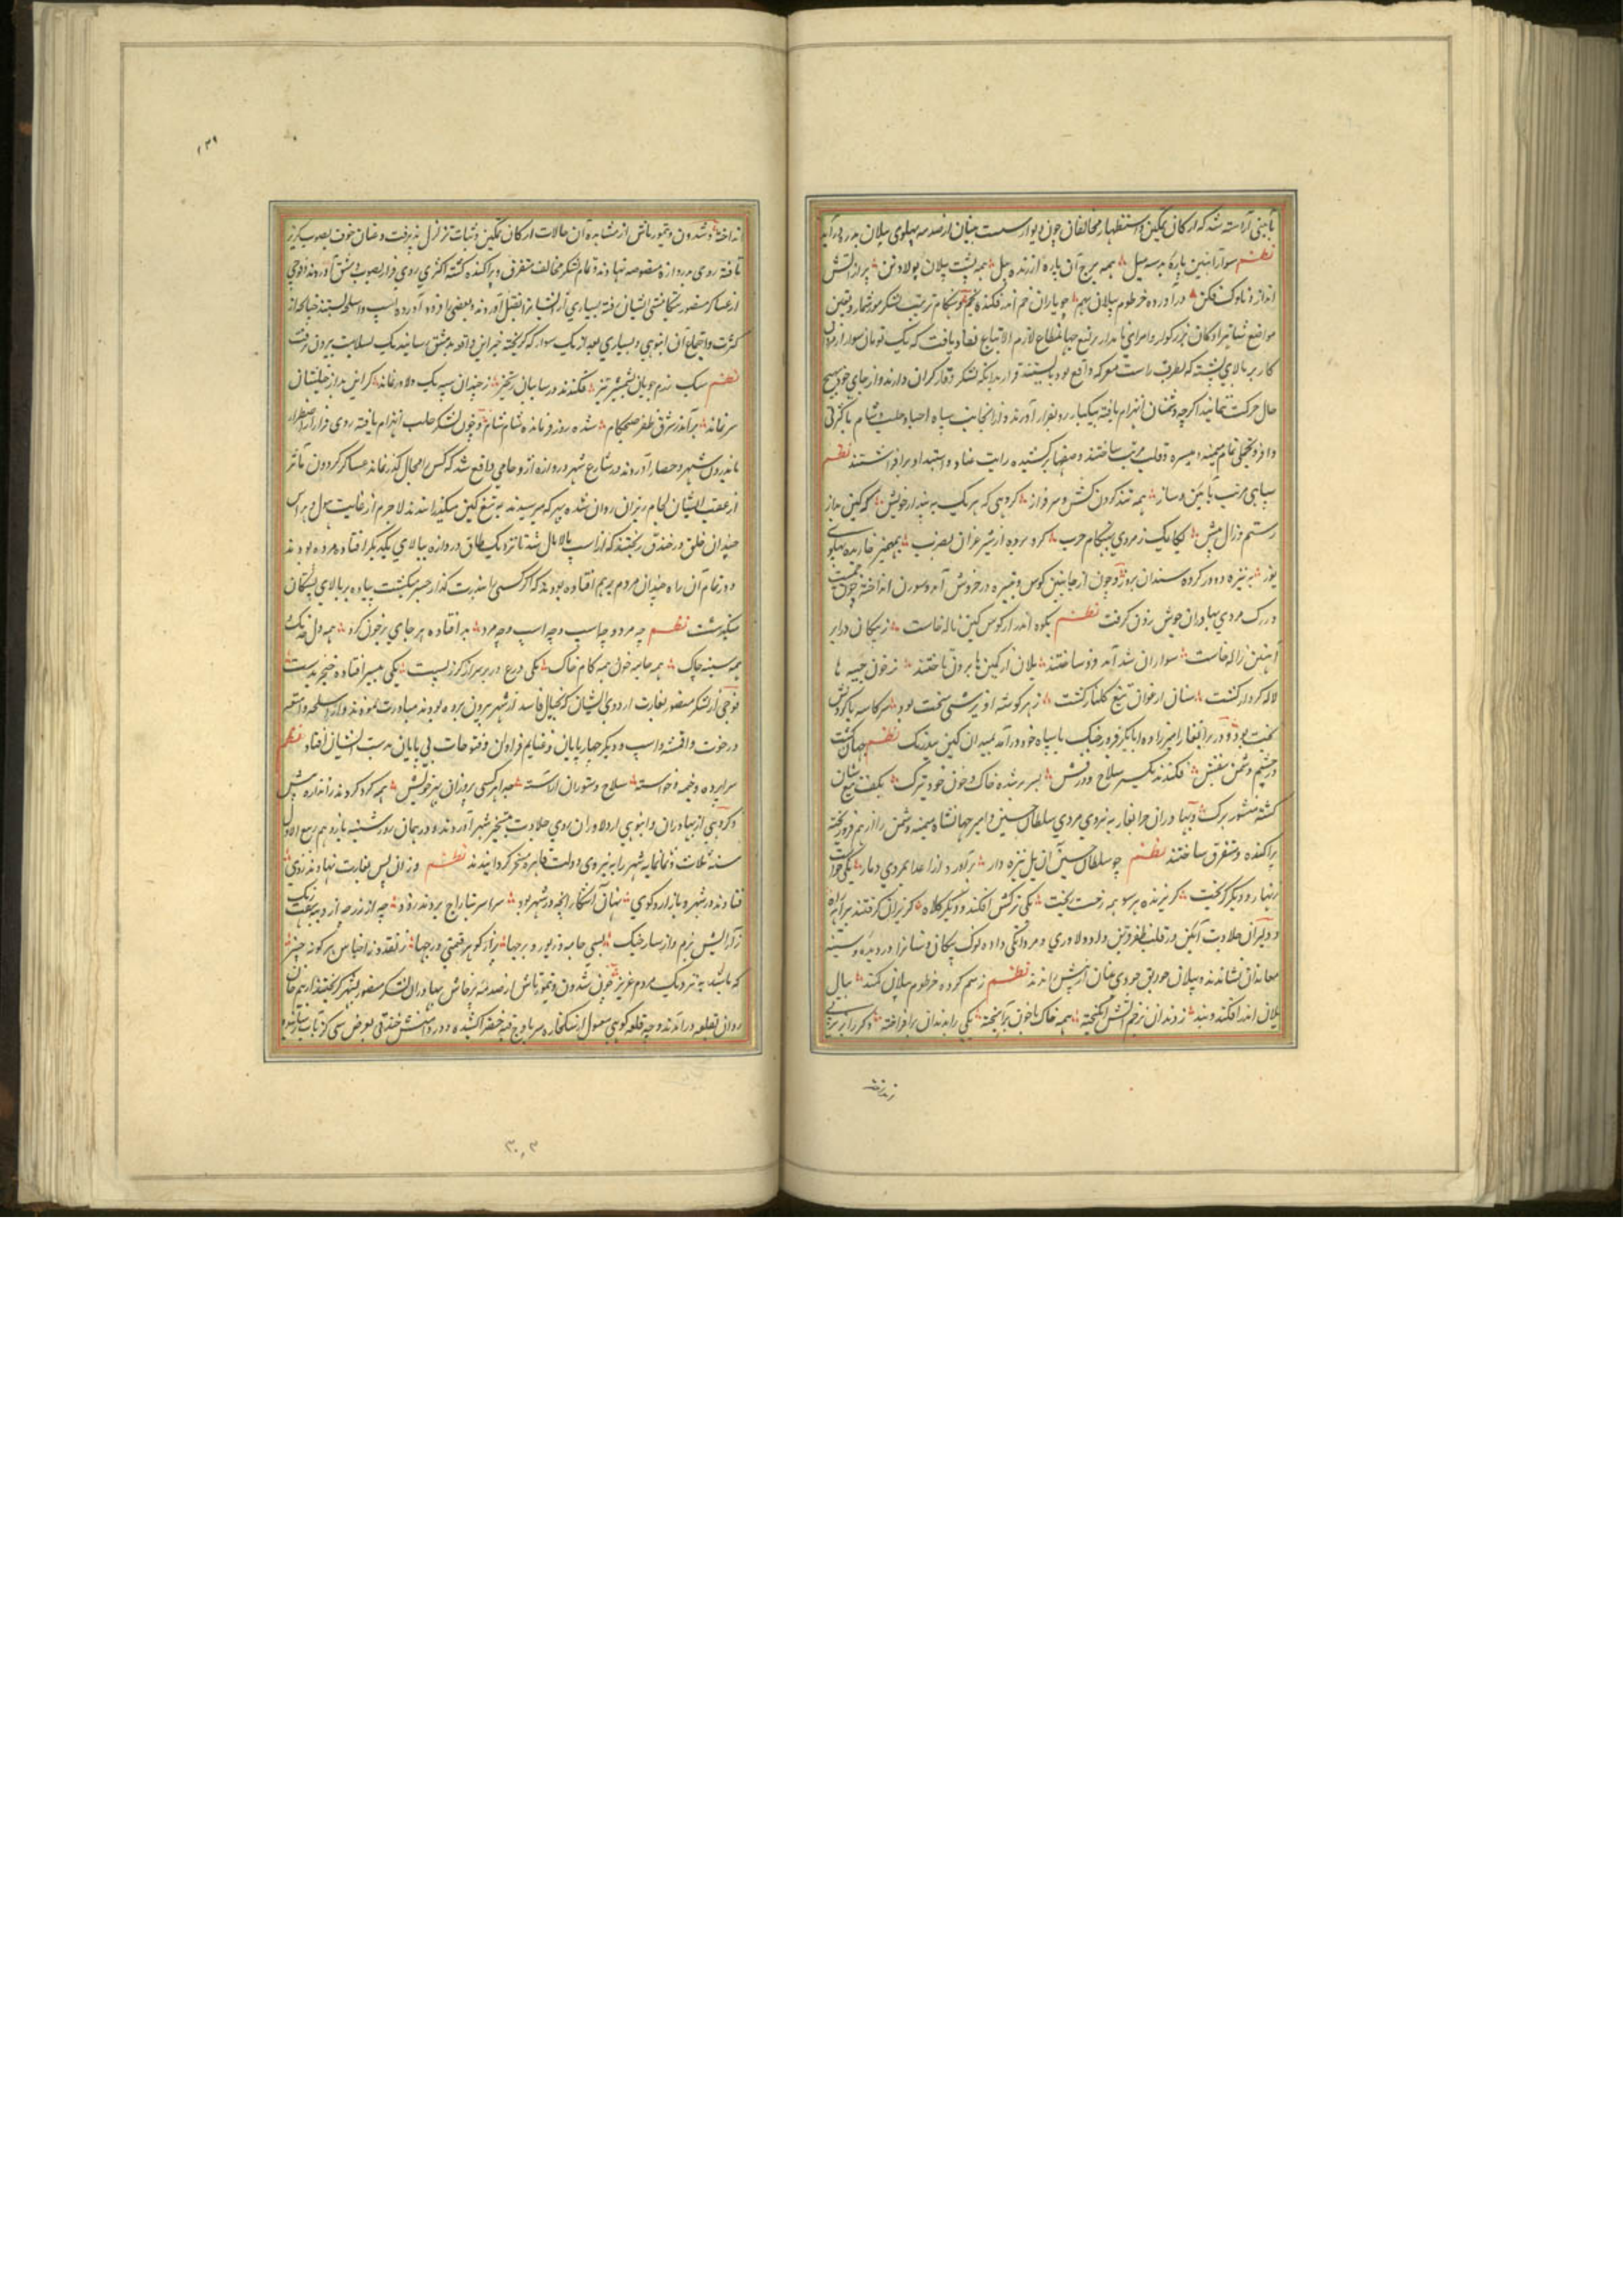 بآیینی آراسته شد که ارکان تمکین و استظهار مخالفان چون دیوار سست بنیان از صدمه پهلوی پیلان بدر در آید
نظم سوار آهنین باره بر سه میل همه برج آن باره از زنده پیل همه پشت پیلان پولاد تن پر از آتش
انداز و ناوک فکن در آورده خرطوم پیلان بهم چو یاران خم اندر فکنده بخم و هنگام ترتیب لشکر مورشمار و تعین
مواضع شاهزادگان بزرگوار و امرای نامدار یرلیغ جهانمطاع لازم الاتباع نفاذ یافت که یک تومان سوار از مردان
کار بر بالای پشته که بطرف راست معرکه واقع بود بایستند و لشکر قرار کران دارند و از جای خود بهیچ
حال حرکت ننمایند اگرچه دشمنان انهزام یافته بیکبار رو بفرار آورند و از آنجانب سپاه حلب و شام با کثرتی
وافر و تجملی تمام میمنه و میسره و قلب مرتب ساختند و صفها برکشیده رایت عناد و استبداد برافراشتند نظم
سپاهی مرتب بآیین و ساز همه تند گردن کش و سرفراز گروهی که هر یک به پندار خویش که کین
رستم و زال پیش یکایک ز مردی بهنگام حرب گرو برده از شیر غران بضرب بمهمیز خاریده پهلوی
یوز به نیزه ده و دور کرده سندان بروز و چون از جانبین کوس و نفیر در خروش آمد و سورن انداخته خون حمیت
در رگ مردی بهادران جوش زدن گرفت نظم بکوه اندر از کوس کین ناله خاست ز پیکان در ابر
آهنین ژاله خاست سواران شد آمد فزون ساختند یلان از کمین ها برون تاختند ز خون جیبه ها
لاله کردار گشت سنان ارغوان تیغ گلنار گشت ز هر گوشه آویزشی سخت بود سر کاسه با گردش
بخت بود و در برانغار امیرزاده ابابکر فرورخنگ با سپاه خود درآمد بمیدان کین بیدرنگ نظم جهان گشت
در چشم دشمن بنفش فکندند یکسر سلاح و درفش بسر بر شده خاک و خون خود و ترک بکف تیغ شان
گشته منشور برک و بهادران جرانغار به نیروی مردی سلطان حسین و امیر جهانشاه میمنه دشمن را از هم فرو ریخته
پراکنده و متفرق ساختند نظم چو سلطان حسین آن یل نیزه دار برآورد از اعدا بمردی دمار یکی خواست
زنهار و دیگر گریخت گریزنده هر سو همه رخت ریخت یکی ترکش افکند و دیگر کلاه گریزان گرفتند بیراه راه
و دلیران جلادت آیین در قلب ظفر قرین داد دلاوری و مردانگی داده نوک پیکان جانستان را در دیده و سینه
معاندان نشاندند و پیلان عنان از پیش راندند نظم ز سم کرده خرطوم پیلان کمند بیال
یلان اندر افکنده بند ز دندان بزخم آتش انگیخته همه خاک با خون برآمیخته یکی را بدندان برافراخته دگر را بزیر پی
انداخته و شدون و تیمورتاش از مشاهده آن حالات ارکان تمکین و ثبات تزلزل پذیرفت و عنان خوف بصوب گریز
تافته روی بدروازه منقوصه نهادند و تمام لشکر مخالف متفرق و پراکنده گشته اکثری روی فرار بصوب دمشق آوردند و فوجی
از عساکر منصور بتکامشی ایشان رفته بسیاری از ایشان را بقتل آوردند و بعضی را فرود آورده اسپ و اسلحه بستدند چنانچه از
کثرت و اجتماع آن انبوهی و بسیاری بعد از یک سوار که گریخته خبر این واقعه بدمشق رسانید یک بسلامت بیرون نرفت
نظم سبک رزم جویان بشمشیر تیز فکندند در سامیان رستخیز ز چندان سپه یک دلاور نماند کزین بد از خیلشان
سر نماند برآمد ز شرق ظفر صبحکام شده روز و مانده شام شام و چون لشکر حلب انهزام یافته روی فرار از اضطرار
باندرون شهر و حصار آوردند در شارع شهر و دروازه ازدحامی واقع شد که کس را مجال گذر نماند عساکر گردون مآثر
از عقب ایشان لجام ریزان روان شده بهر که میرسیدند به تیغ کین میگذراندند لاجرم از غایت هول و هراس
چندان خلق در خندق ریختند که از اسب مالامال شد تا نزدیک طاق دروازه ببالای یکدیگر افتاده مرده بودند
و در تمام آن راه چندان مردم بر هم افتاده بودند که اگر کسی را بندرت گذار میسر میگشت پیاده بر بالای کشتگان
میگذشت نظم چه مرد و چه اسپ و چه اسپ و چه مرد بد افتاده هر جای پر خون گرد همه دل
همه سینه چاک همه جامه خون همه کام خاک یکی درع در بر سر از گرز پست یکی بیسر افتاده خنجر بدست
فوجی از لشکر منصور بغارت اردوی ایشان که بخیال فاسد از شهر بیرون برده بودند مبادرت نمودند و از اسلحه و امتعه
و رخوت و اقمشه و اسپ و دیگر چهارپایان و غنایم فراوان و فتوحات بی پایان بدست ایشان افتاد نظم
سراپرده و خیمه و خواسته سلاح و ستوران آراسته جدا هر کسی بهر خویش همه گرد کردند ز اندازه بیش
و گروهی از بهادران و انبوهی از دلاوران روی جلادت بتسخیر شهر آوردند و در همان روز شنبه یازدهم ربیع الاول
سنه ثلاث و ثمانمایه شهر را به نیروی دولت قاهره مسخر گردانیدند نظم وز ان پس بغارت نهادند روی
فتادند در شهر و بازار و کوی نهان و آشکار آنچه در شهر بود سراسر بتاراج بردند زود چه از زر چه از دیبه رنگ رنگ
ز آرایش بزم و از ساز جنگ بسی جامه و زیور و برجها پر از گوهر قیمتی درجها ز نقد و ز اجناس هر گونه چیز
که باشد به نزدیک مردم عزیز و چون شدون و تیمورتاش از صدمه پرخاش بهادران لشکر منصور بشهر گریختند از بیم جان
روان بقلعه درآمدند و چه قلعه کوهی معمول از سنگ خاره سر باوج قبه خضرا کشیده و در دامنش خندقی بعرض سی گز تا آب
زدندانش
۱۳۹
۳۰۳